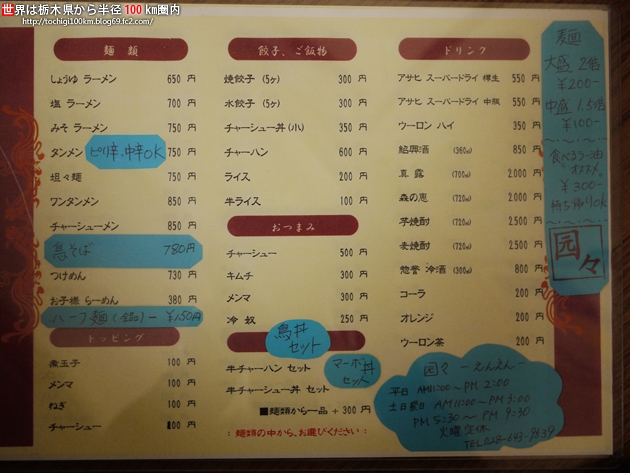 世界は栃木県から半径100km圏内
http://tochigi100km.blog69.fc2.com/
麺類
しょうゆ ラーメン 650 円
塩 ラーメン 700 円
みそ ラーメン 750 円
タンメン ピリ辛、中辛OK 750 円
坦々麺 750 円
ワンタンメン 850 円
チャーシューメン 850 円
鳥そば 780円
つけめん 730 円
お子様 らーめん 380 円
ハーフ麺 ¥150円
トッピング
煮玉子 100 円
メンマ 100 円
ねぎ 100 円
チャーシュー 円
餃子、ご飯物
焼餃子 (5ヶ) 300 円
水餃子 (5ヶ) 300 円
チャーシュー丼(小) 350 円
チャーハン 600 円
ライス 200 円
半ライス 100 円
おつまみ
チャーシュー 500 円
キムチ 300 円
メンマ 300 円
冷 奴 250 円
鳥丼セット
半チャーハン セット
マーボ丼セット
半チャーシュー丼 セット
■麺類から一品 + 300 円
：麺類の中から、お選びください：
ドリンク
アサヒ スーパードライ 樽生 550 円
アサヒ スーパードライ 中瓶 550 円
ウーロン ハイ 350 円
紹興酒 (360ml) 850 円
真 露 (700ml) 2.000 円
森の恵 (720ml) 2.000 円
芋焼酎 (720ml) 2.500 円
麦焼酎 (720ml) 2.500 円
惣誉 冷酒 (300ml) 800 円
コーラ 200 円
オレンジ 200 円
ウーロン茶 200 円
麺
大盛 2倍
¥200-
中盛 1.5倍
¥100-
食べるラー油
オススメ
¥300-
持ち帰りOK
园々
园々 -えんえん-
平日 AM11:00～PM 2:00
土日祭日 AM11:00～PM 3:00
PM 5:30～PM 9:30
火曜定休
TEL028-643-9639